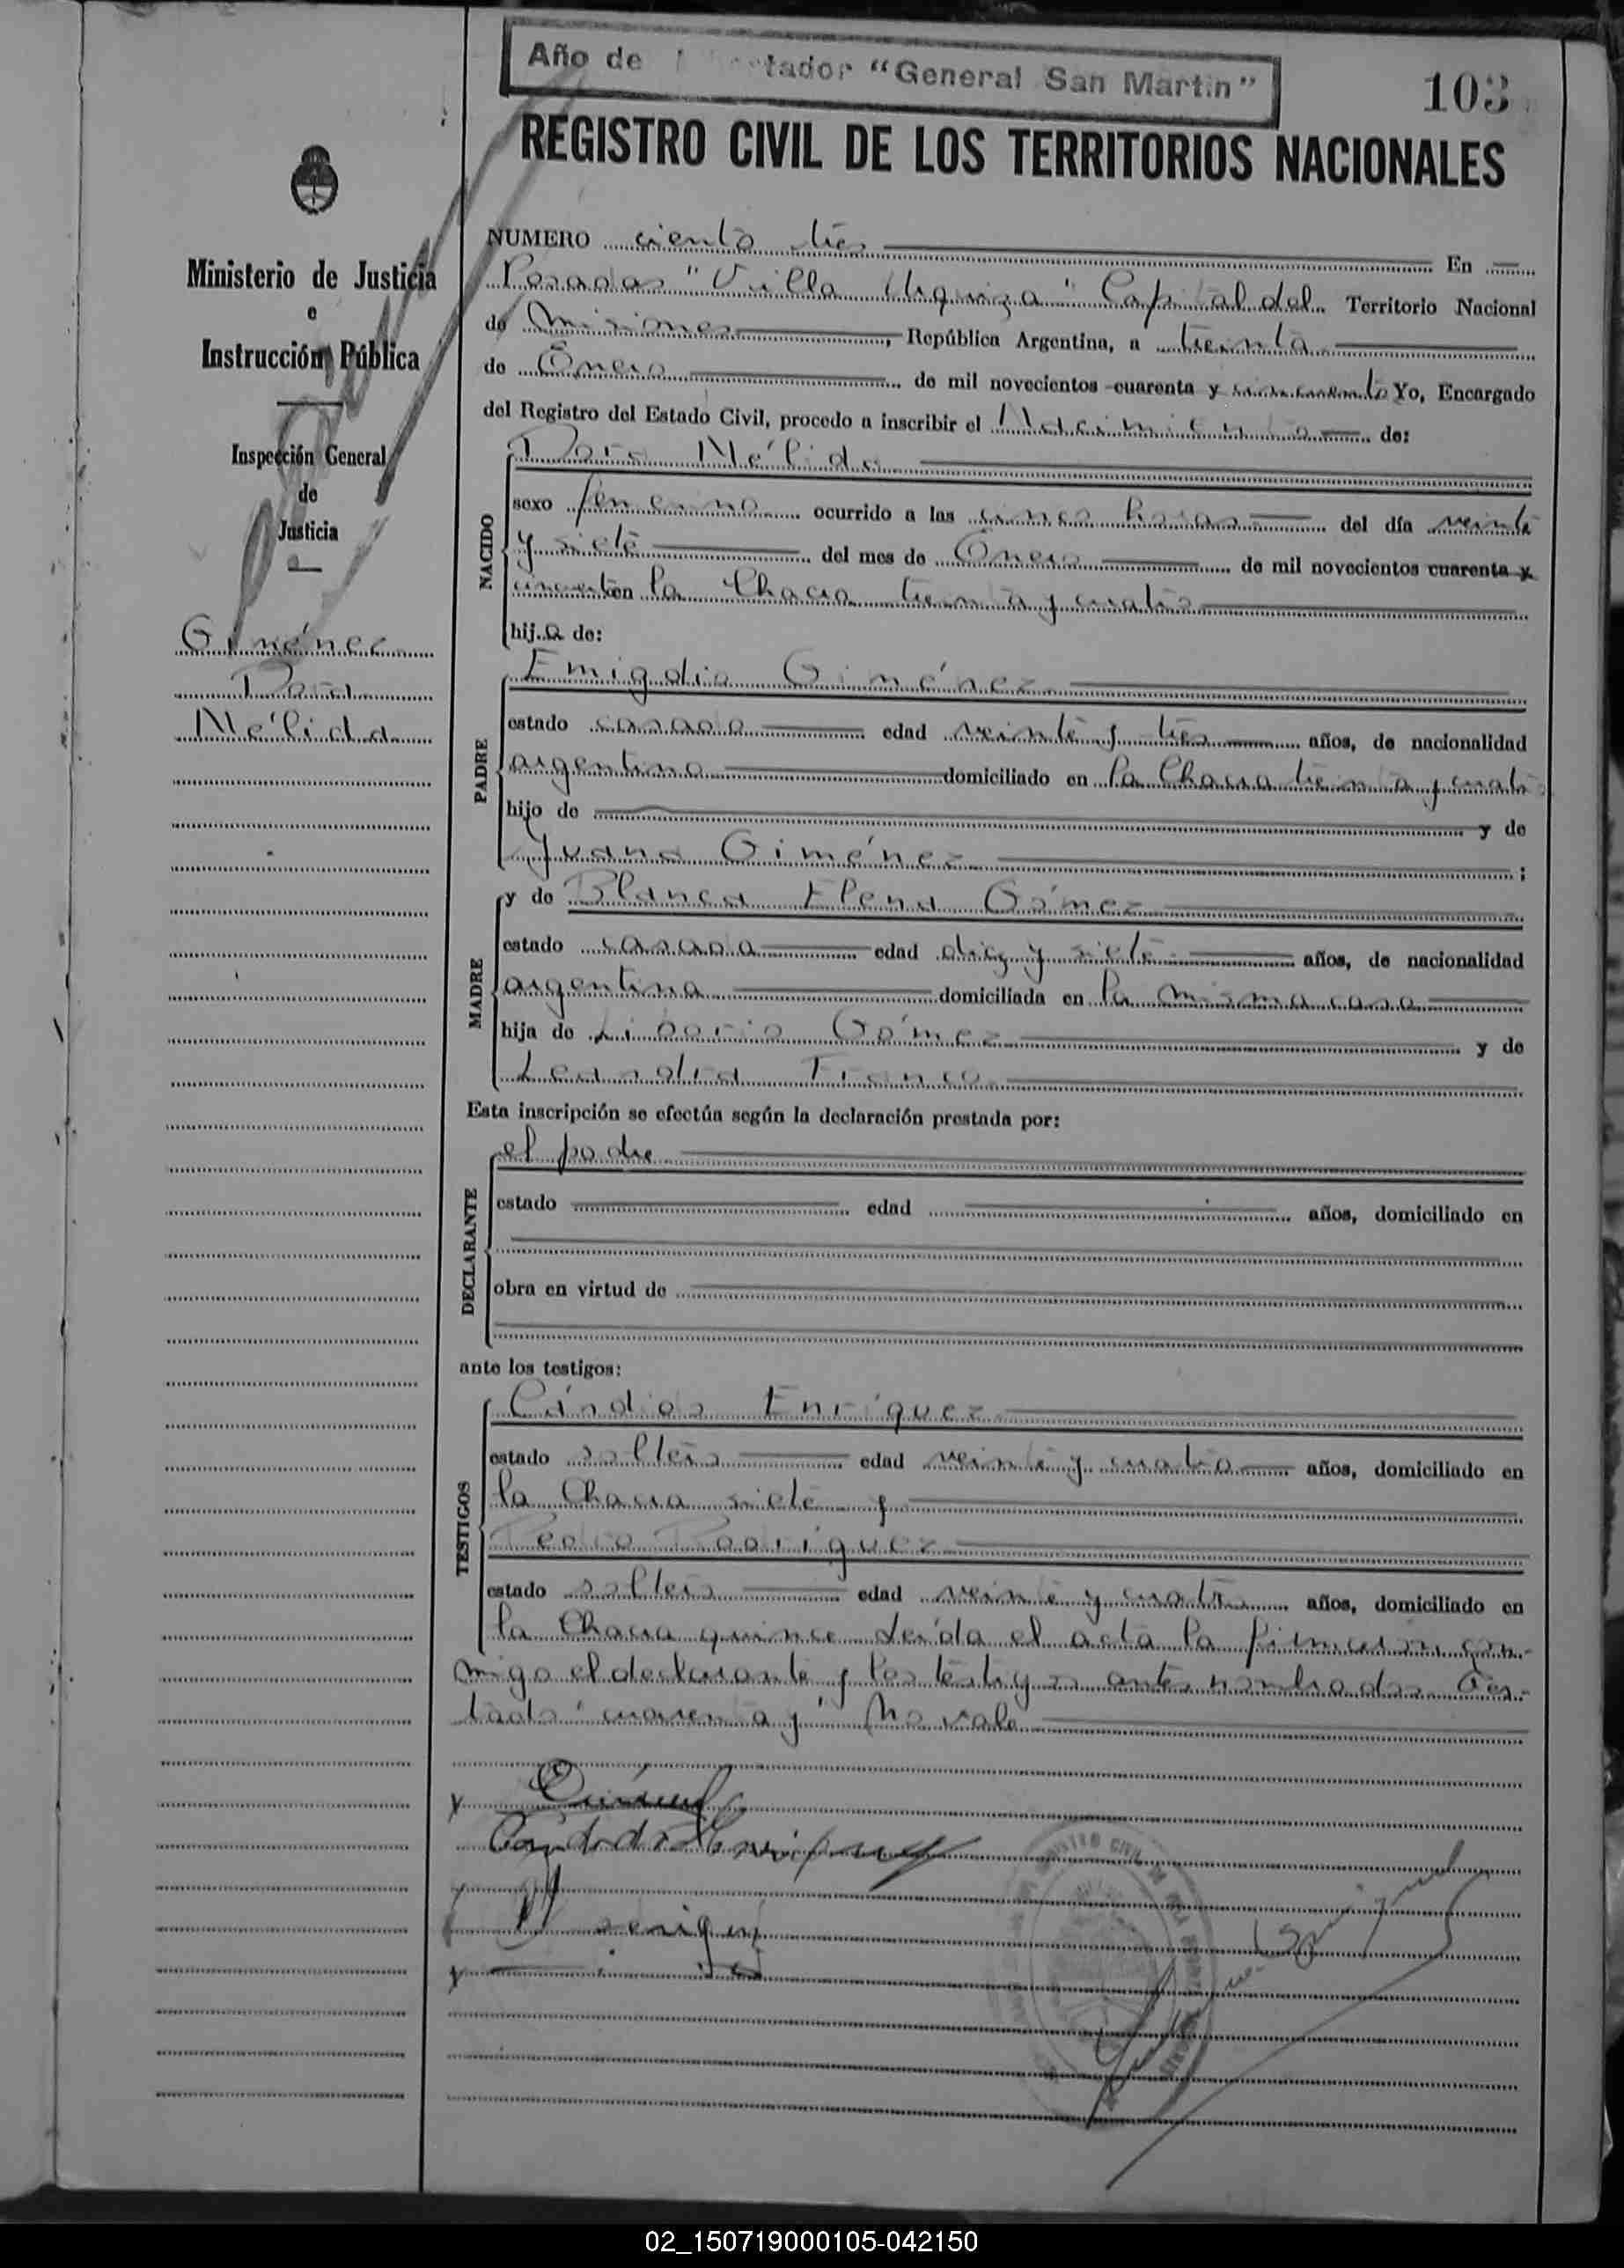 Año de tador "General San Martin"
103
REGISTRO CIVIL DE LOS TERRITORIOS NACIONALES
Ministerio de Justicia
e
Instrucción Pública
Inspección General
de
Justicia
Giménez
Dora
Nélida
NUMERO ciento tres En
Posadas "Villa Urquiza" Capital del Territorio Nacional
de Misiones, República Argentina, a treinta
de Enero de mil novecientos cuarenta y cincuenta Yo, Encargado
del Registro del Estado Civil, procedo a inscribir el Nacimiento de:
Dora Nélida
NACIDO
sexo femenino ocurrido a las cinco horas del día veinte
y siete del mes de Enero de mil novecientos cuarenta y
cincuenta en la Chacra treinta y cuatro
hija de:
Emigdio Giménez
PADRE
estado casado edad veinte y tres años, de nacionalidad
argentino domiciliado en la Chacra treinta y cuatro
hijo de y de
Juana Giménez ;
y de Blanca Elena Gómez
MADRE
estado casada edad diez y siete años, de nacionalidad
argentina domiciliada en la misma casa
hija de Liborio Gómez y de
Leandra Franco
Esta inscripción se efectúa según la declaración prestada por:
el padre
DECLARANTE
estado edad años, domiciliado en
obra en virtud de
ante los testigos:
Cándido Enríquez
TESTIGOS
estado soltero edad veinte y cuatro años, domiciliado en
la Chacra siete y
Pedro Rodríguez
estado soltero edad veinte y cuatro años, domiciliado en
la Chacra quince Leída el acta la firmaron con-
migo el declarante y los testigos antes nombrados Tes-
tado "cuarenta y" No vale
Cándido Enríquez
02_150719000105-042150